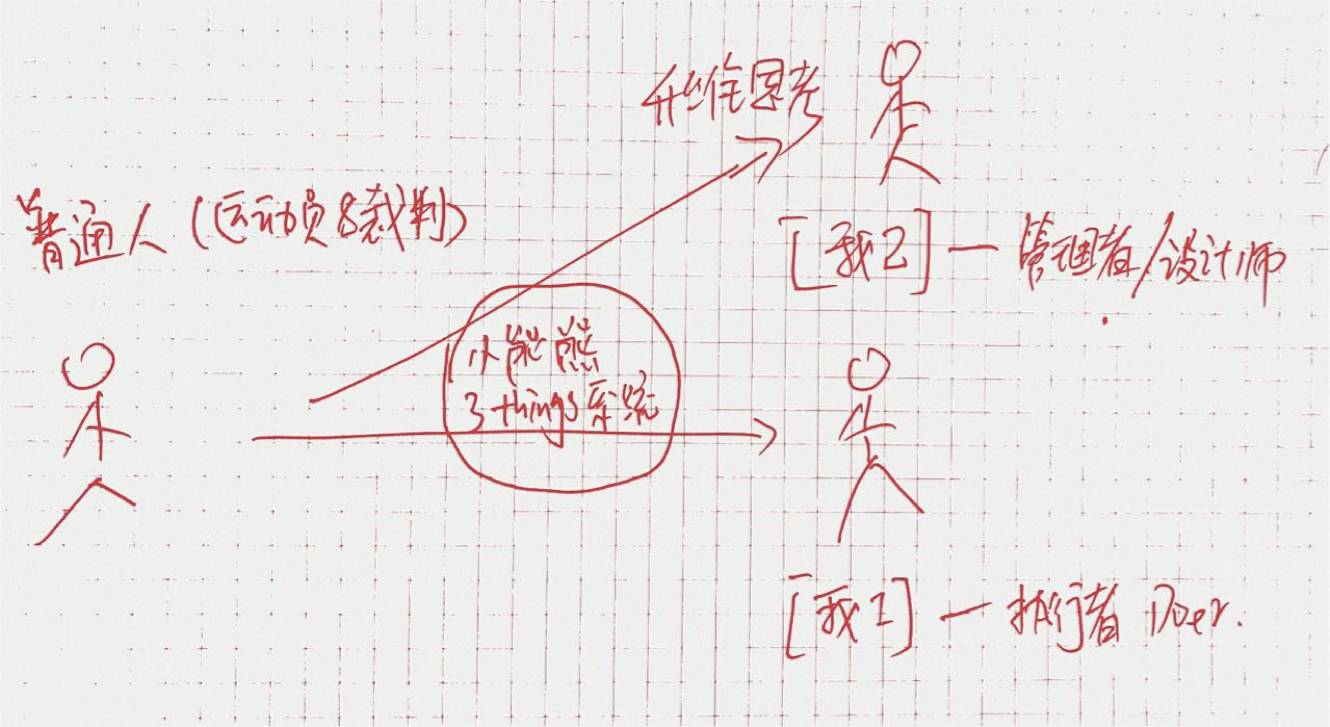 升维思考
普通人(运动员&裁判)
[我2]一管理者/设计师
小能熊
3 things系统
[我1]一执行者 Doer.